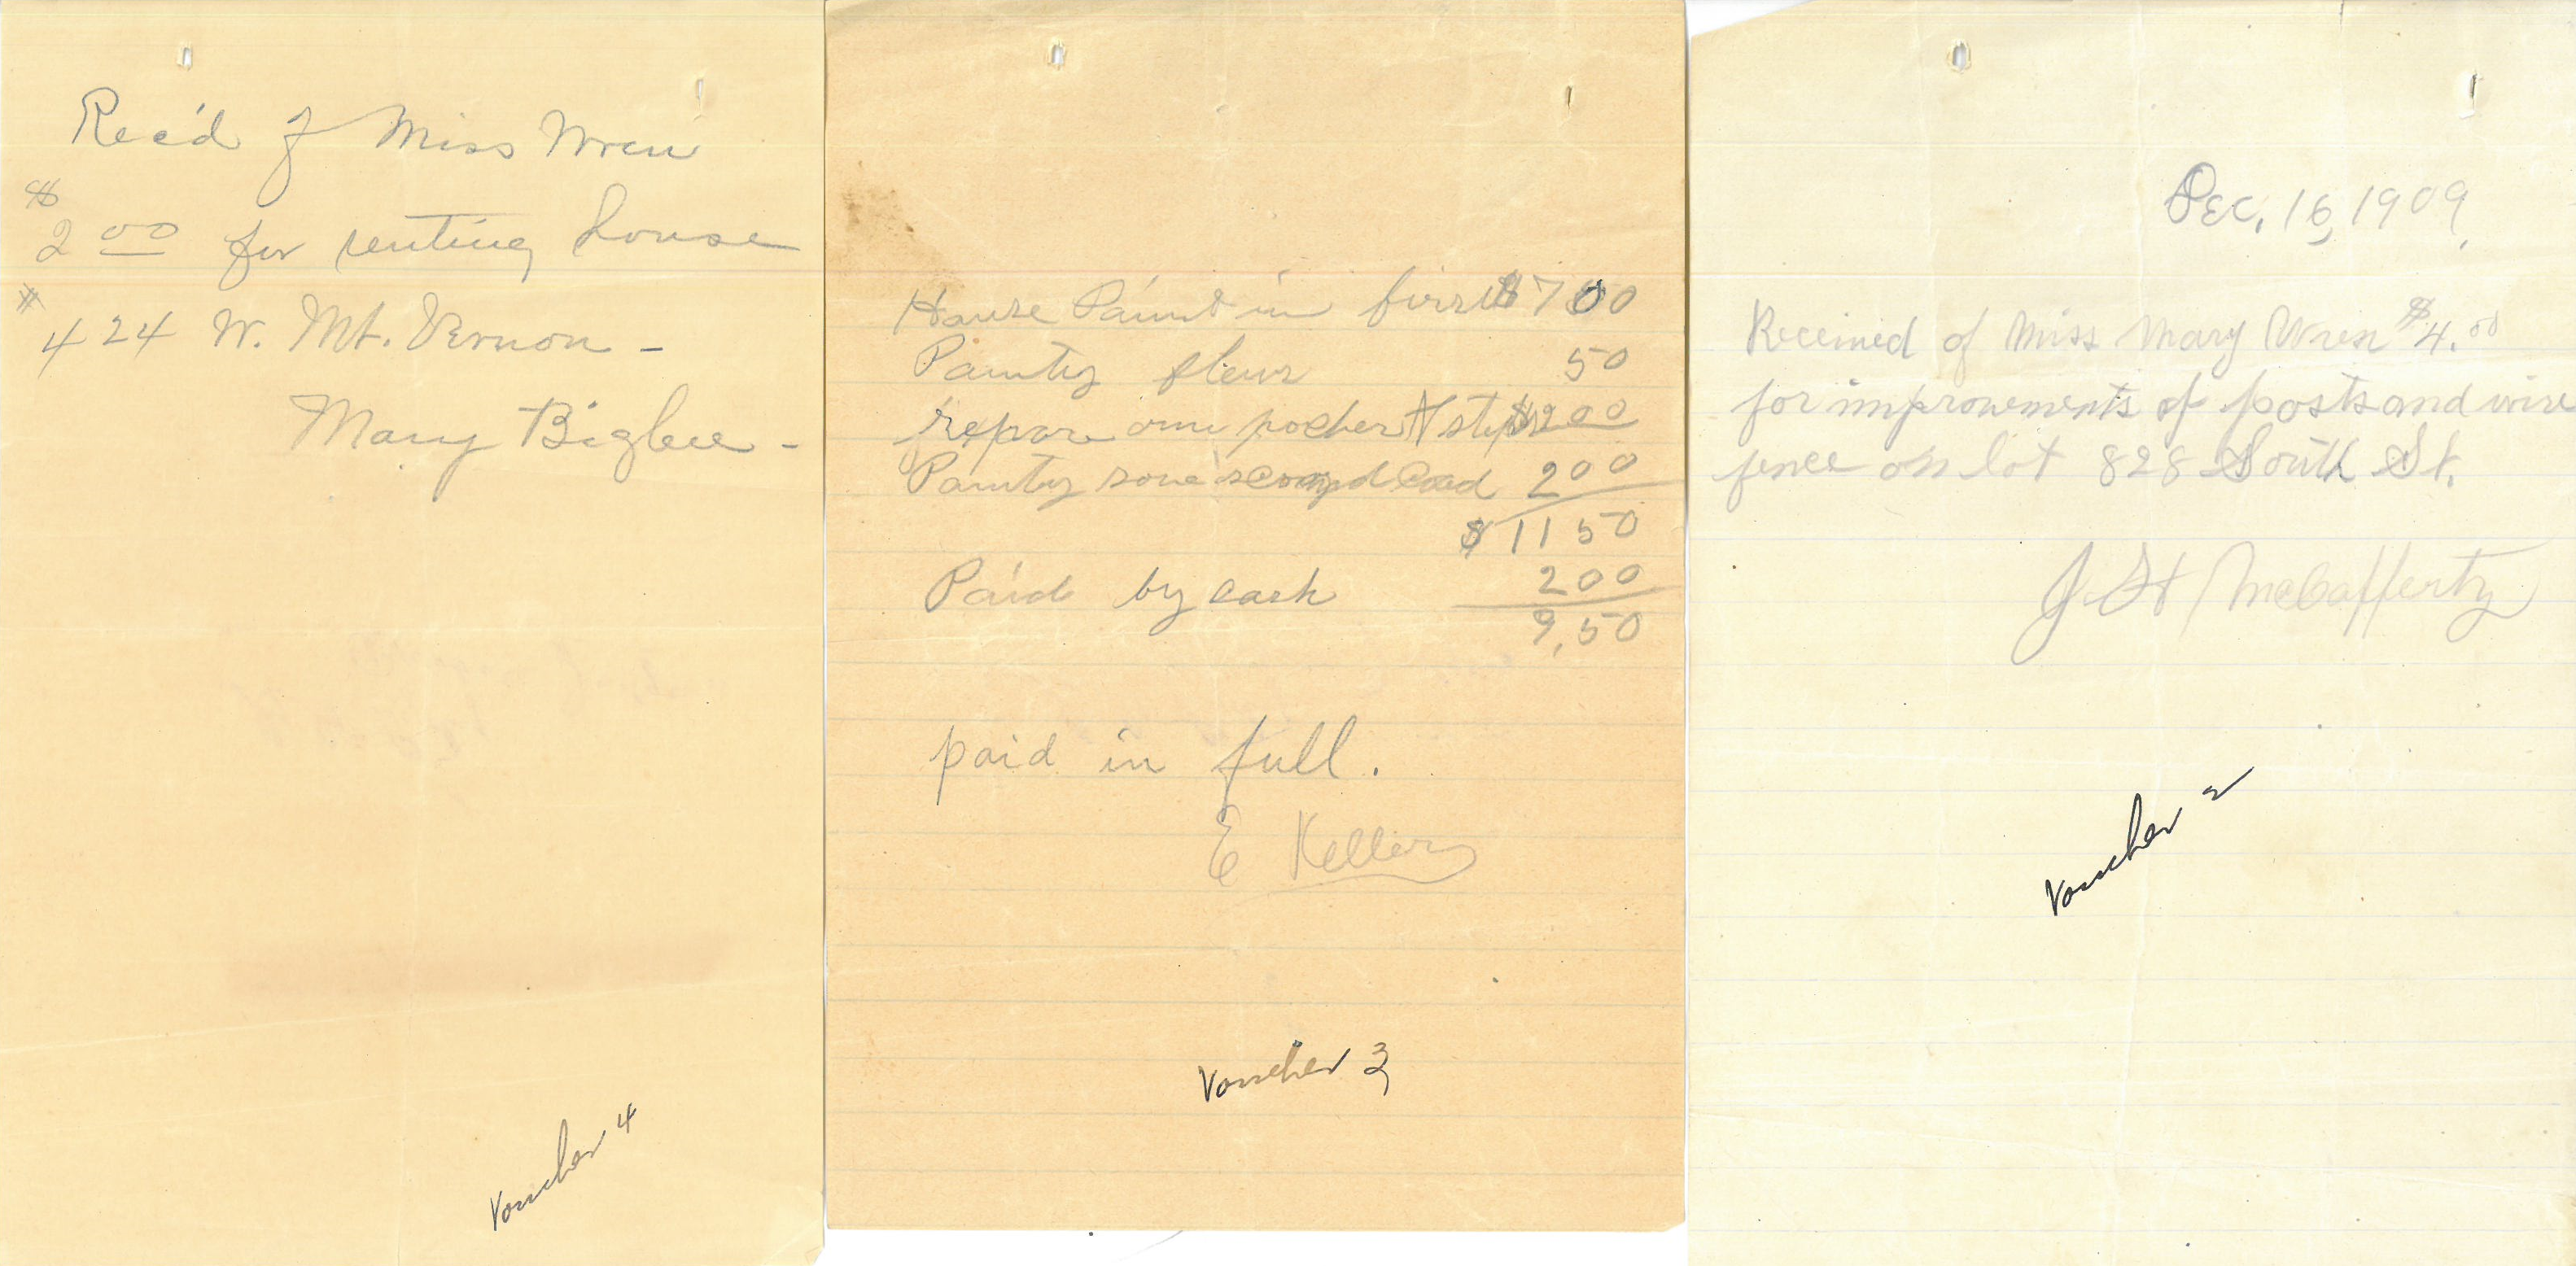 Rec'd of Miss Wren
$
2 00 for renting house
#
424 W. Mt. Vernon -
Mary Bigbee -
Voucher 4
House Paint in first $700
Painty flour 50
repare one pocher & steps $200
Painty some second Coad 200
$1150
Paid by cash 200
9,50
paid in full.
E Keller
Voucher 3
Dec. 16, 1909.
Received of Miss Mary Wren $4.00
for improvements of posts and wire
fence on lot 828 South St.
J. H McCafferty
Voucher 2